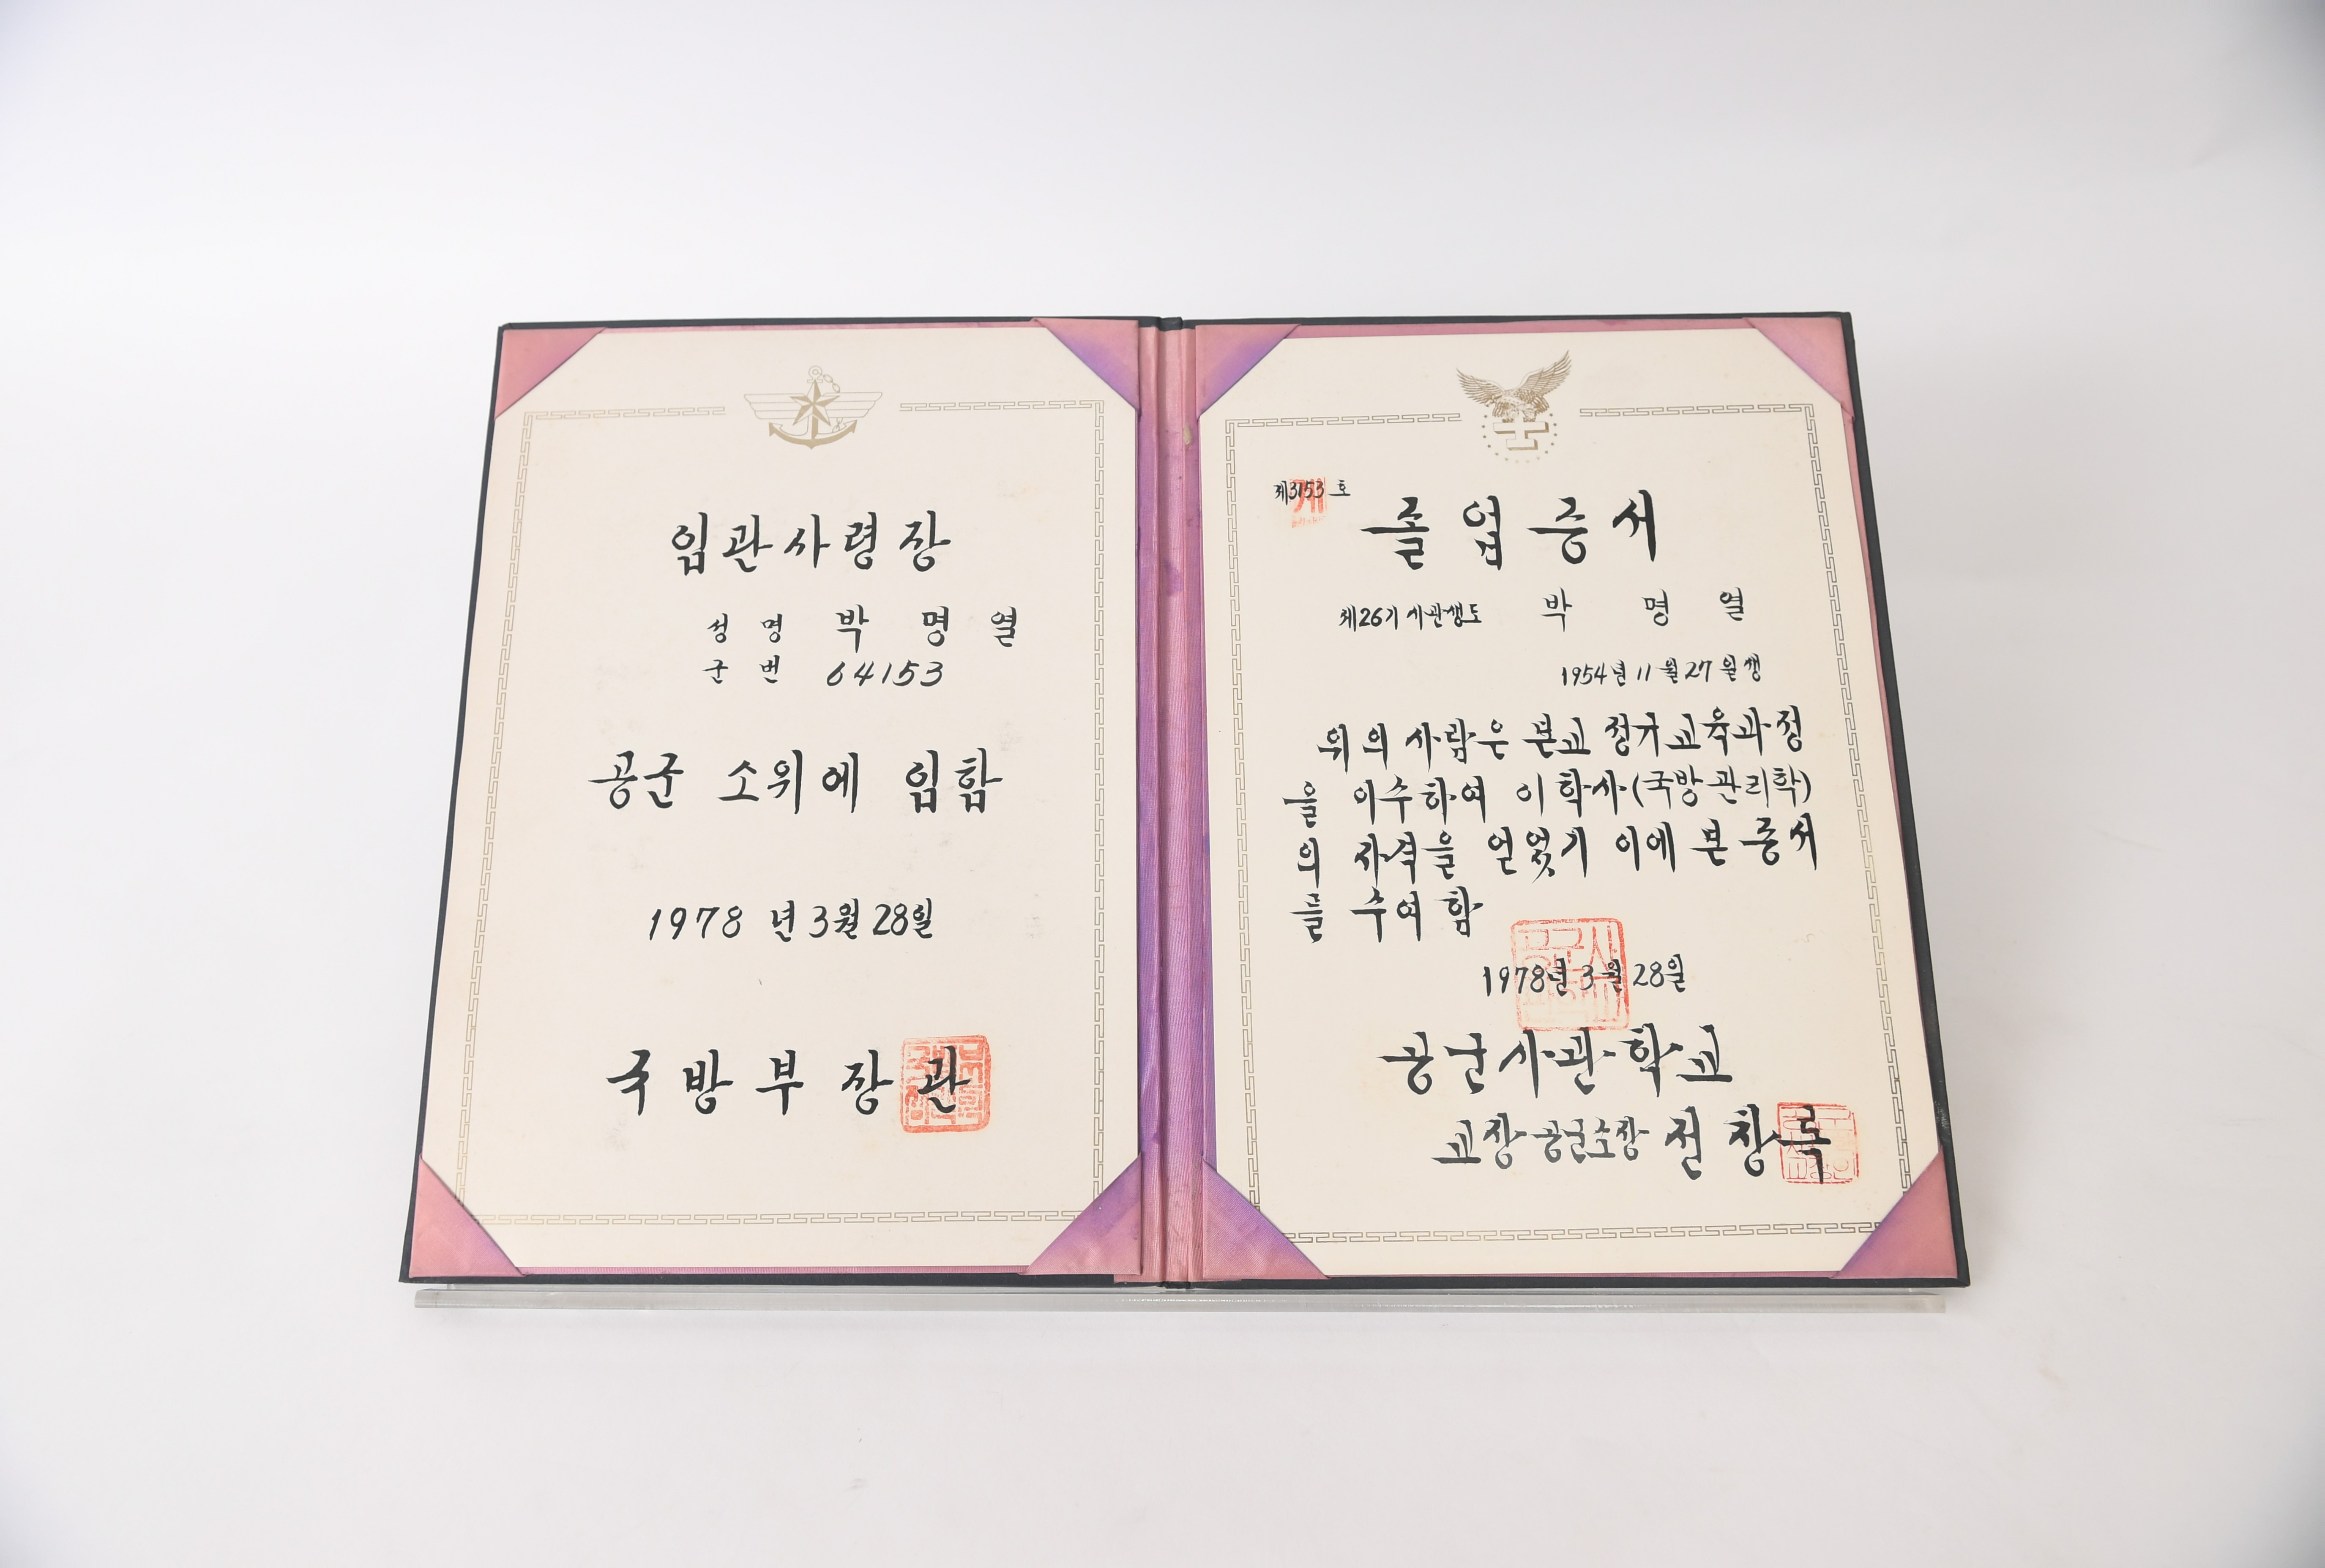 임관사령장
성 명 박 명 열
군 번 64153
공군 소위에 임함
1978 년 3월 28일
국 방 부 장 관
제3153 호
계
졸 업 증 서
제26기 사관생도 박 명 열
1954년 11월 27일생
위의 사람은 본교 정규교육과정
을 이수하여 이학사(국방관리학)
의 자격을 얻었기 이에 본 증서
를 수여 함
1978년 3월 28일
공군사관학교
교장 공군소장 전 창 록